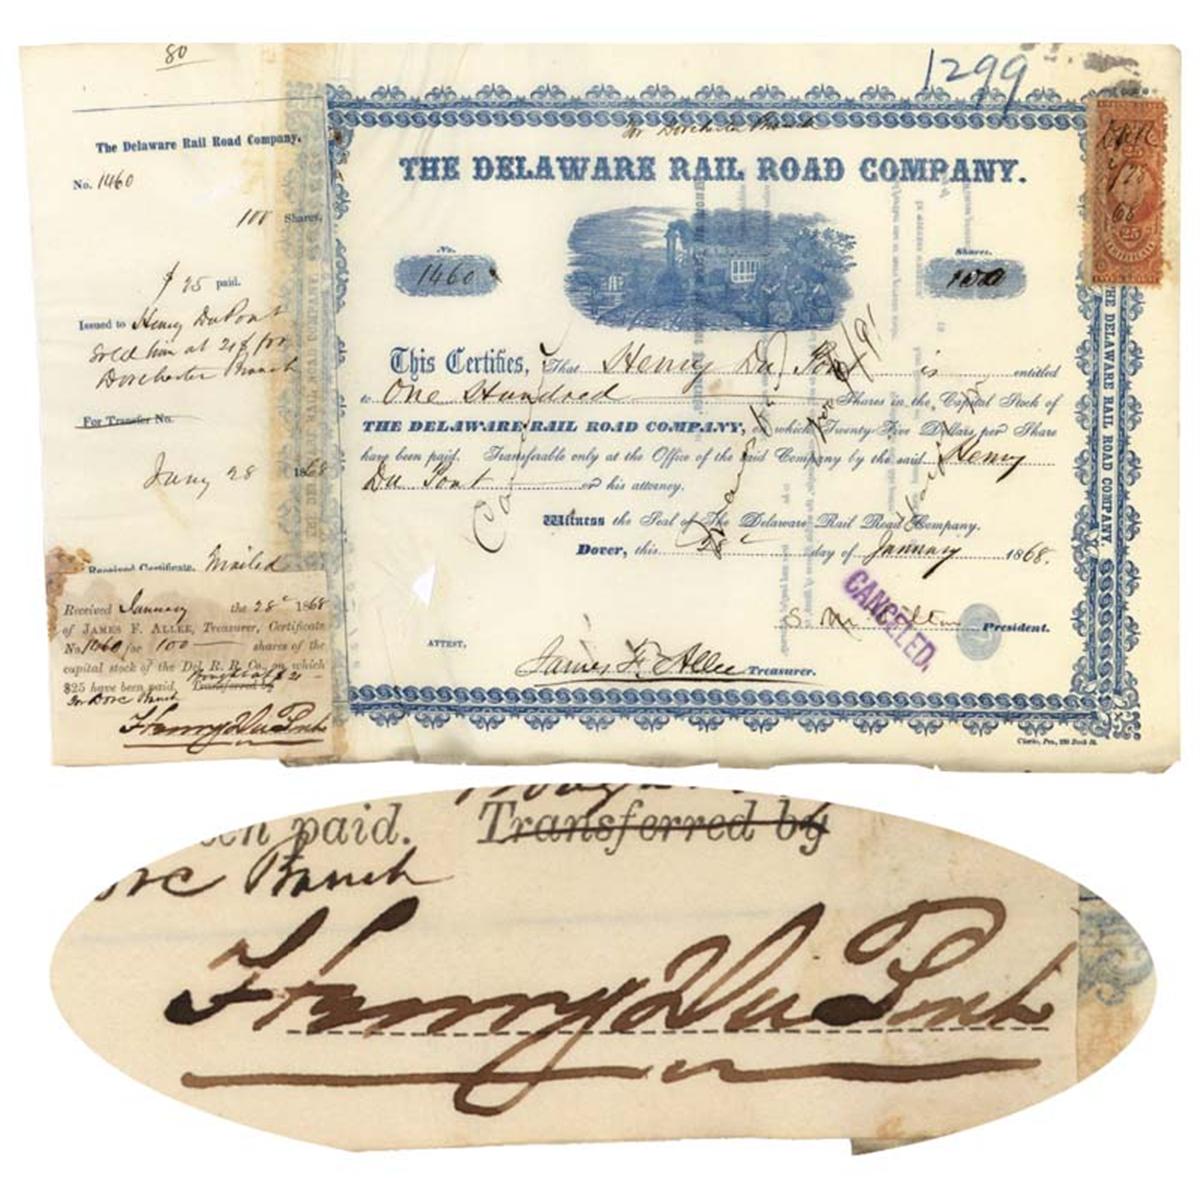 80
The Delaware Rail Road Company.
No. 1460
100 Shares.
$25 paid.
Issued to Henry Du Pont
Sold him at 21$ for
Dorchester Branch
For Transfer No.
Jany 28 1868
Received Certificate. Mailed
Received January the 28 1868
of JAMES F. ALLEE, Treasurer, Certificate
No. 1460 for 100 shares of the
capital stock of the Del. R. R. Co., on which
$25 have been paid. Transferred by
for Dorc Branch
Henry Du Pont
1299
for Dorchester Branch
THE DELAWARE RAIL ROAD COMPANY.
No. 1460
Shares. 100
This Certifies, That Henry Du Pont is entitled
to One Hundred Shares in the Capital Stock of
THE DELAWARE RAIL ROAD COMPANY, on which Twenty-Five Dollars per Share
have been paid. Transferable only at the Office of the said Company by the said Henry
Du Pont or his attorney.
Witness the Seal of The Delaware Rail Road Company.
Dover, this 28 day of January 1868.
CANCELED.
S. M. Felton President.
ATTEST,
James F. Allee Treasurer.
THE DELAWARE RAIL ROAD COMPANY
25
68
25
een paid. Transferred by
orc Branch
Henry Du Pont